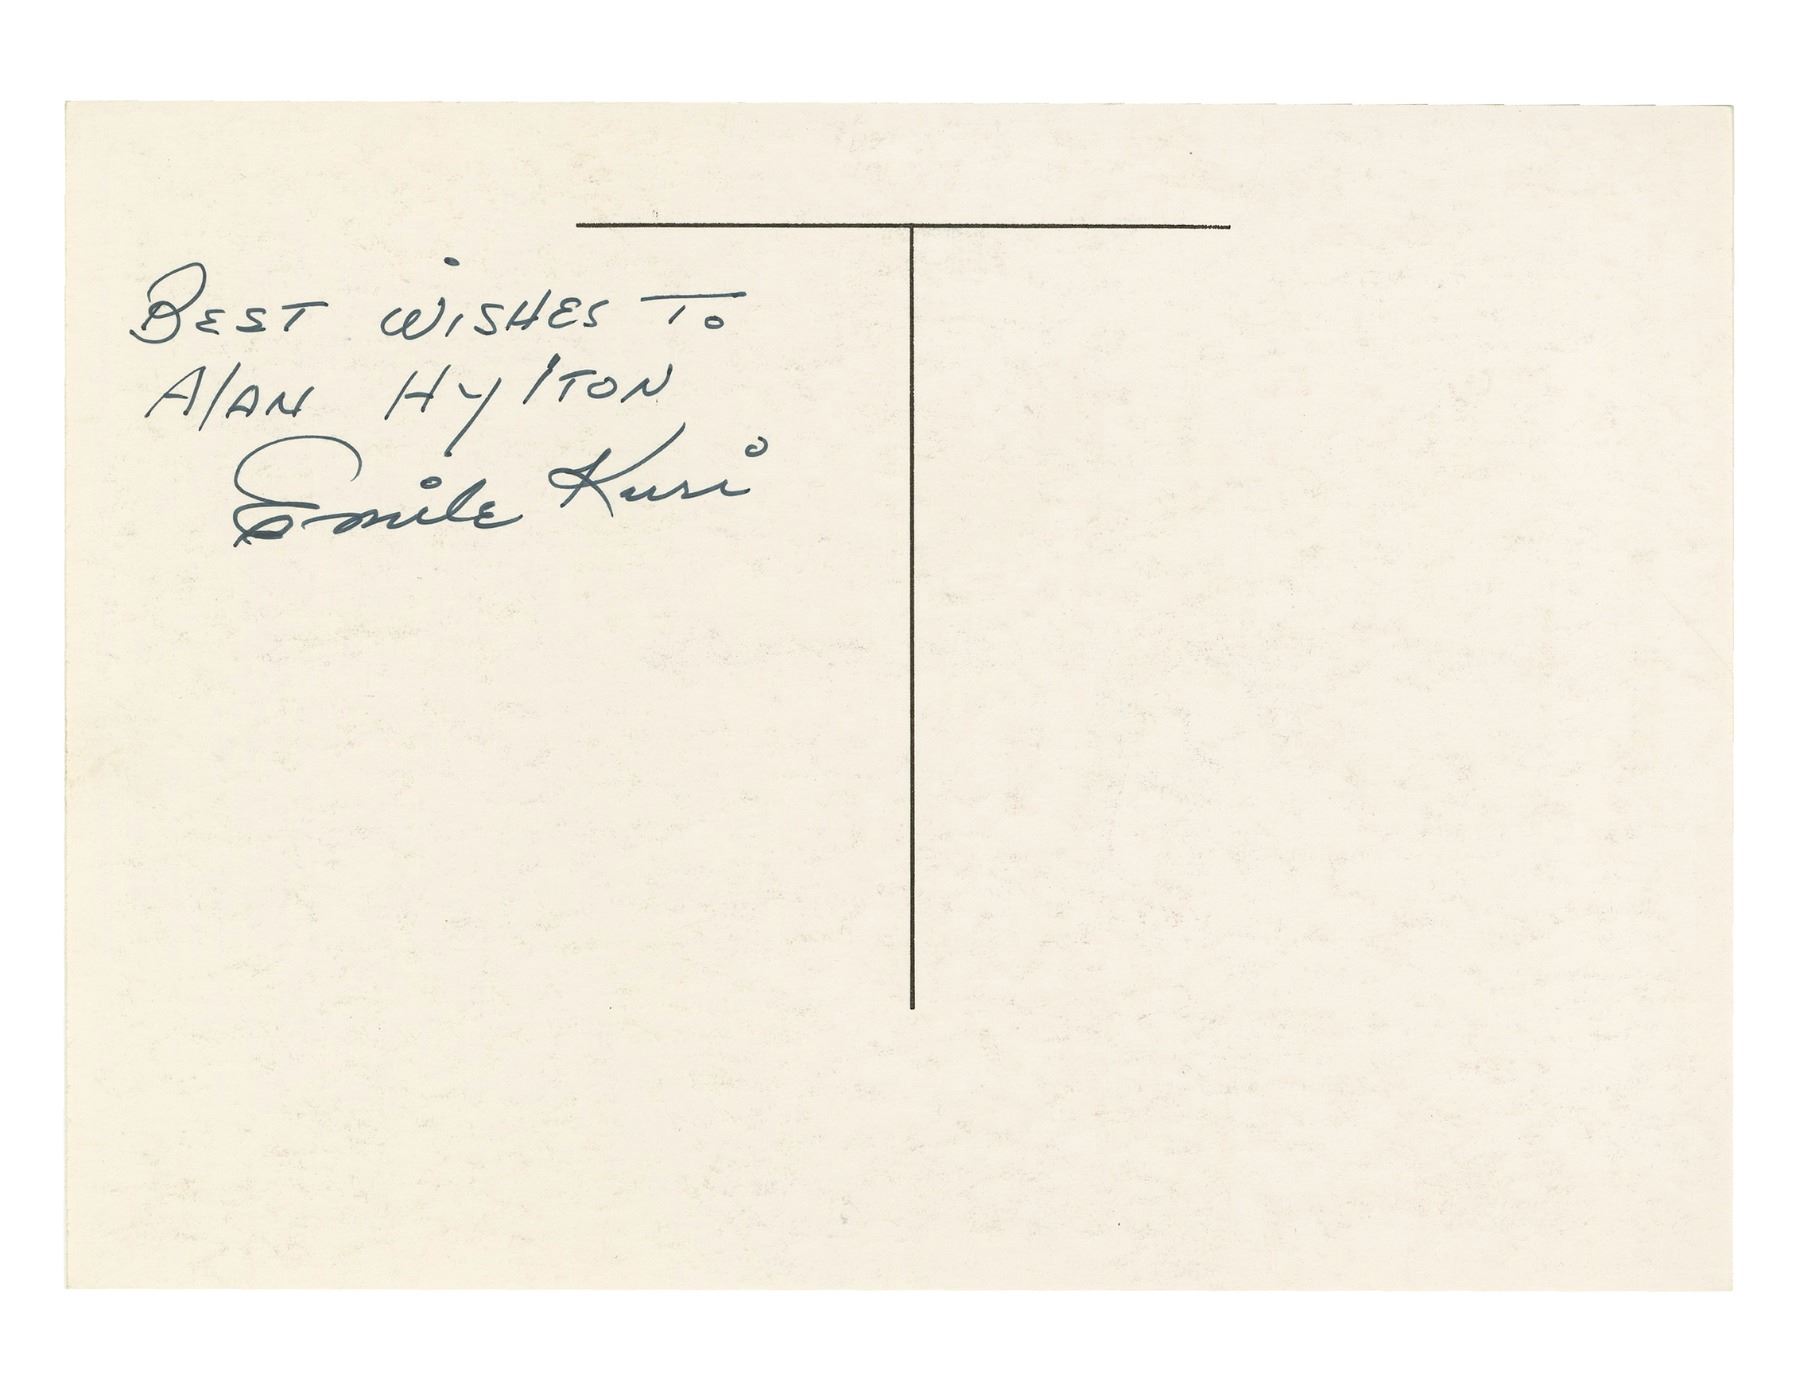 Best wishes to
Alan Hylton
Emile Kuri